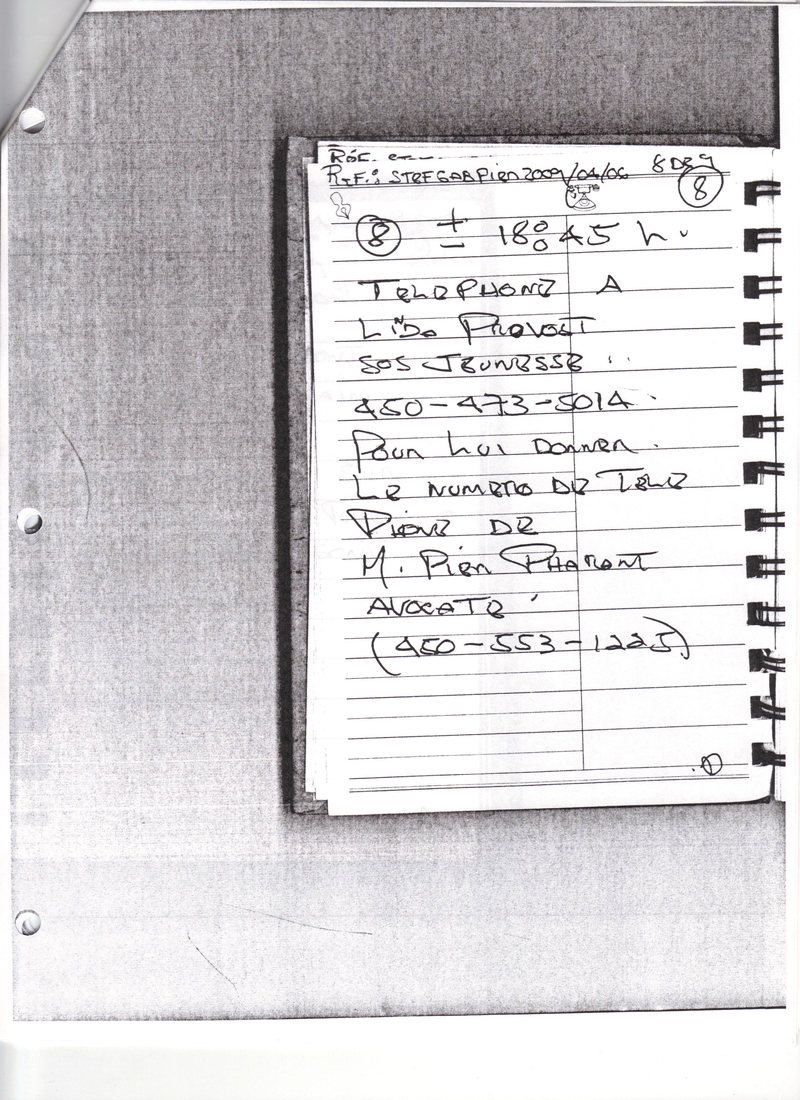 Réf.
Réf.: STEFGABPIER 2009/04/06 8 DE 9
8
8 ± 18:45 h.
TELEPHONE A
LiDa PROVOST
SOS JEUNESSE ..
450-473-5014.
POUR LUI DONNER.
LE NUMERO DE TELE
PHONE DE
M. PIER PHARANT
AVOCATE
(450-553-1225)